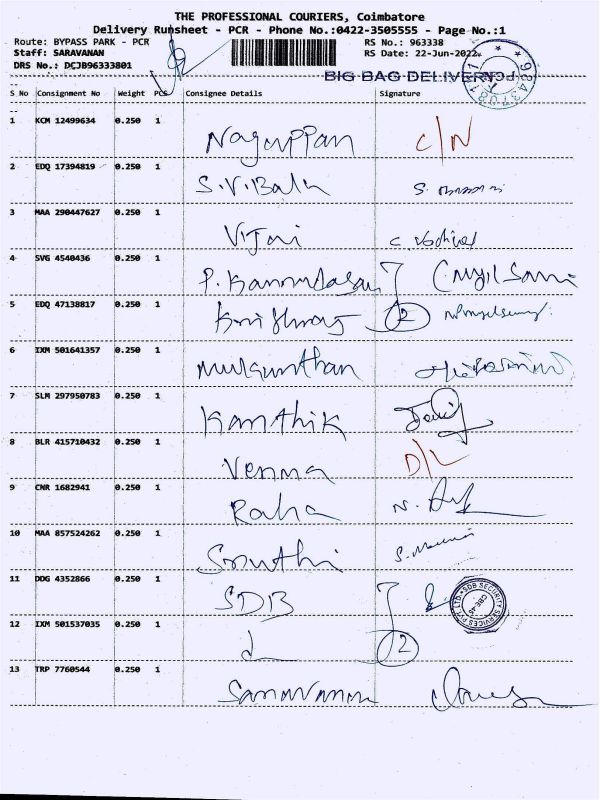 THE PROFESSIONAL COURIERS, Coimbatore
Delivery Runsheet - PCR - Phone No.:0422-3505555 - Page No.:1
Route: BYPASS PARK - PCR RS No.: 963338
Staff: SARAVANAN RS Date: 22-Jun-2022
DRS No.: DCJB96333801
BIG BAG DELIVERY
S No Consignment No Weight PCS Consignee Details Signature
1 KCM 12499634 0.250 1 Nagappan C/N
2 EDQ 17394819 0.250 1 S.V.Balu
3 MAA 290447627 0.250 1 Vijai
4 SVG 4540436 0.250 1 P. Kannadasan
5 EDQ 47138817 0.250 1 2
6 IXM 501641357 0.250 1 Mukunthan
7 SLM 297950783 0.250 1 Karthik
8 BLR 415710432 0.250 1 Verma D/L
9 CNR 1682941 0.250 1 Raha
10 MAA 857524262 0.250 1 Sruthi
11 DDG 4352866 0.250 1 SDB
SDB SECURITY SERVICES PVT LTD
CBE-45
12 IXM 501537035 0.250 1 2
13 TRP 7760544 0.250 1 Saravanan